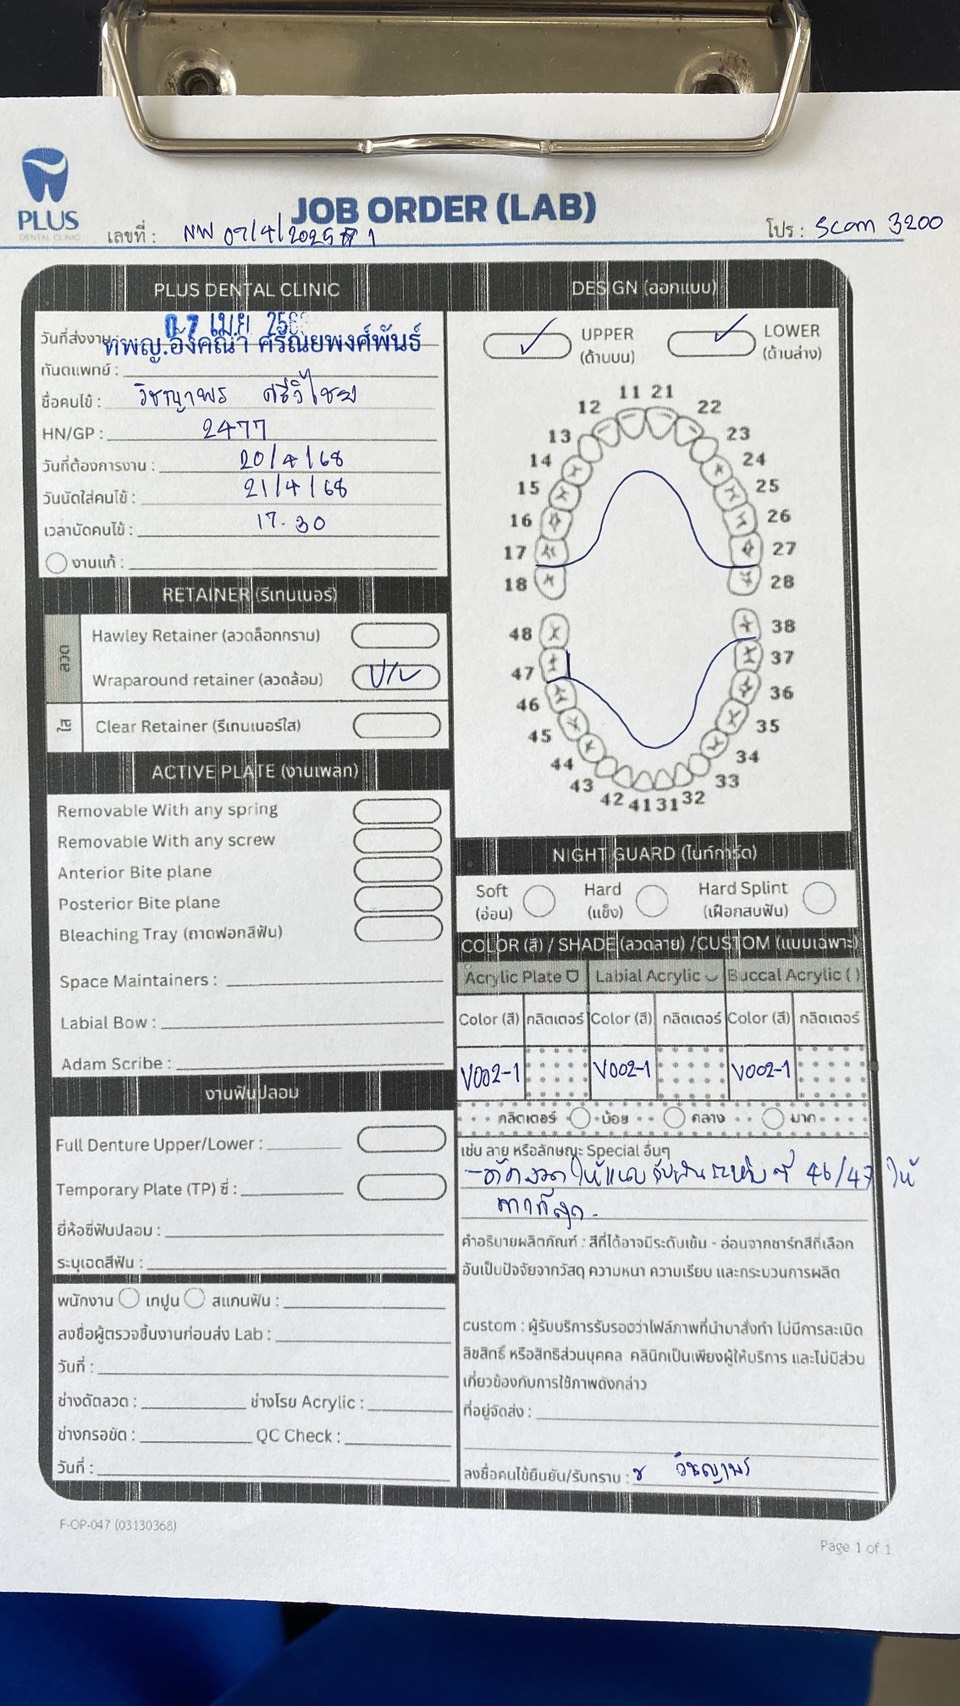 PLUS
DENTAL CLINIC
JOB ORDER (LAB)
เลขที่ : NW 07/4/2025 1
โปร : Scan 3200
PLUS DENTAL CLINIC
วันที่ส่งงาน 07 เม.ย 256
ทพญ.อังคณา ศรัณยพงศ์พันธ์
ทันตแพทย์ :
ชื่อคนไข้ : วิชญาพร ศรีวิไชย
HN/GP : 2477
วันที่ต้องการงาน : 20/4/68
วันนัดใส่คนไข้ : 21/4/68
เวลานัดคนไข้ : 17.30
งานแก้ :
RETAINER (รีเทนเนอร์)
ลวด
Hawley Retainer (ลวดล็อกกราม)
Wraparound retainer (ลวดล้อม) U/L
ใส
Clear Retainer (รีเทนเนอร์ใส)
ACTIVE PLATE (งานเพลท)
Removable With any spring
Removable With any screw
Anterior Bite plane
Posterior Bite plane
Bleaching Tray (ถาดฟอกสีฟัน)
Space Maintainers :
Labial Bow :
Adam Scribe :
งานฟันปลอม
Full Denture Upper/Lower :
Temporary Plate (TP) ซี่ :
ยี่ห้อซี่ฟันปลอม :
ระบุเฉดสีฟัน :
พนักงาน เทปูน สแกนฟัน :
ลงชื่อผู้ตรวจชิ้นงานก่อนส่ง Lab :
วันที่ :
ช่างดัดลวด : ช่างโรย Acrylic :
ช่างกรอขัด : QC Check :
วันที่ :
DESIGN (ออกแบบ)
UPPER
(ด้านบน)
LOWER
(ด้านล่าง)
11 21
12 22
13 23
14 24
15 25
16 26
17 27
18 28
48 38
47 37
46 36
45 35
44 34
43 33
42 41 31 32
NIGHT GUARD (ไนท์การ์ด)
Soft
(อ่อน)
Hard
(แข็ง)
Hard Splint
(เฝือกสบฟัน)
COLOR (สี) / SHADE (ลวดลาย) /CUSTOM (แบบเฉพาะ)
Acrylic Plate Labial Acrylic Buccal Acrylic ( )
Color (สี) กลิตเตอร์ Color (สี) กลิตเตอร์ Color (สี) กลิตเตอร์
V002-1 V002-1 V002-1
กลิตเตอร์ น้อย กลาง มาก
เช่น ลาย หรือลักษณะ Special อื่นๆ
- ดัดลวดให้แนบ 46/47 ให้
มากที่สุด.
คำอธิบายผลิตภัณฑ์ : สีที่ได้อาจมีระดับเข้ม - อ่อนจากชาร์ทสีที่เลือก
อันเป็นปัจจัยจากวัสดุ ความหนา ความเรียบ และกระบวนการผลิต
custom : ผู้รับบริการรับรองว่าไฟล์ภาพที่นำมาสั่งทำ ไม่มีการละเมิด
ลิขสิทธิ์ หรือสิทธิส่วนบุคคล คลินิกเป็นเพียงผู้ให้บริการ และไม่มีส่วน
เกี่ยวข้องกับการใช้ภาพดังกล่าว
ที่อยู่จัดส่ง :
ลงชื่อคนไข้ยืนยัน/รับทราบ : วิชญาพร
F-OP-047 (03130368)
Page 1 of 1